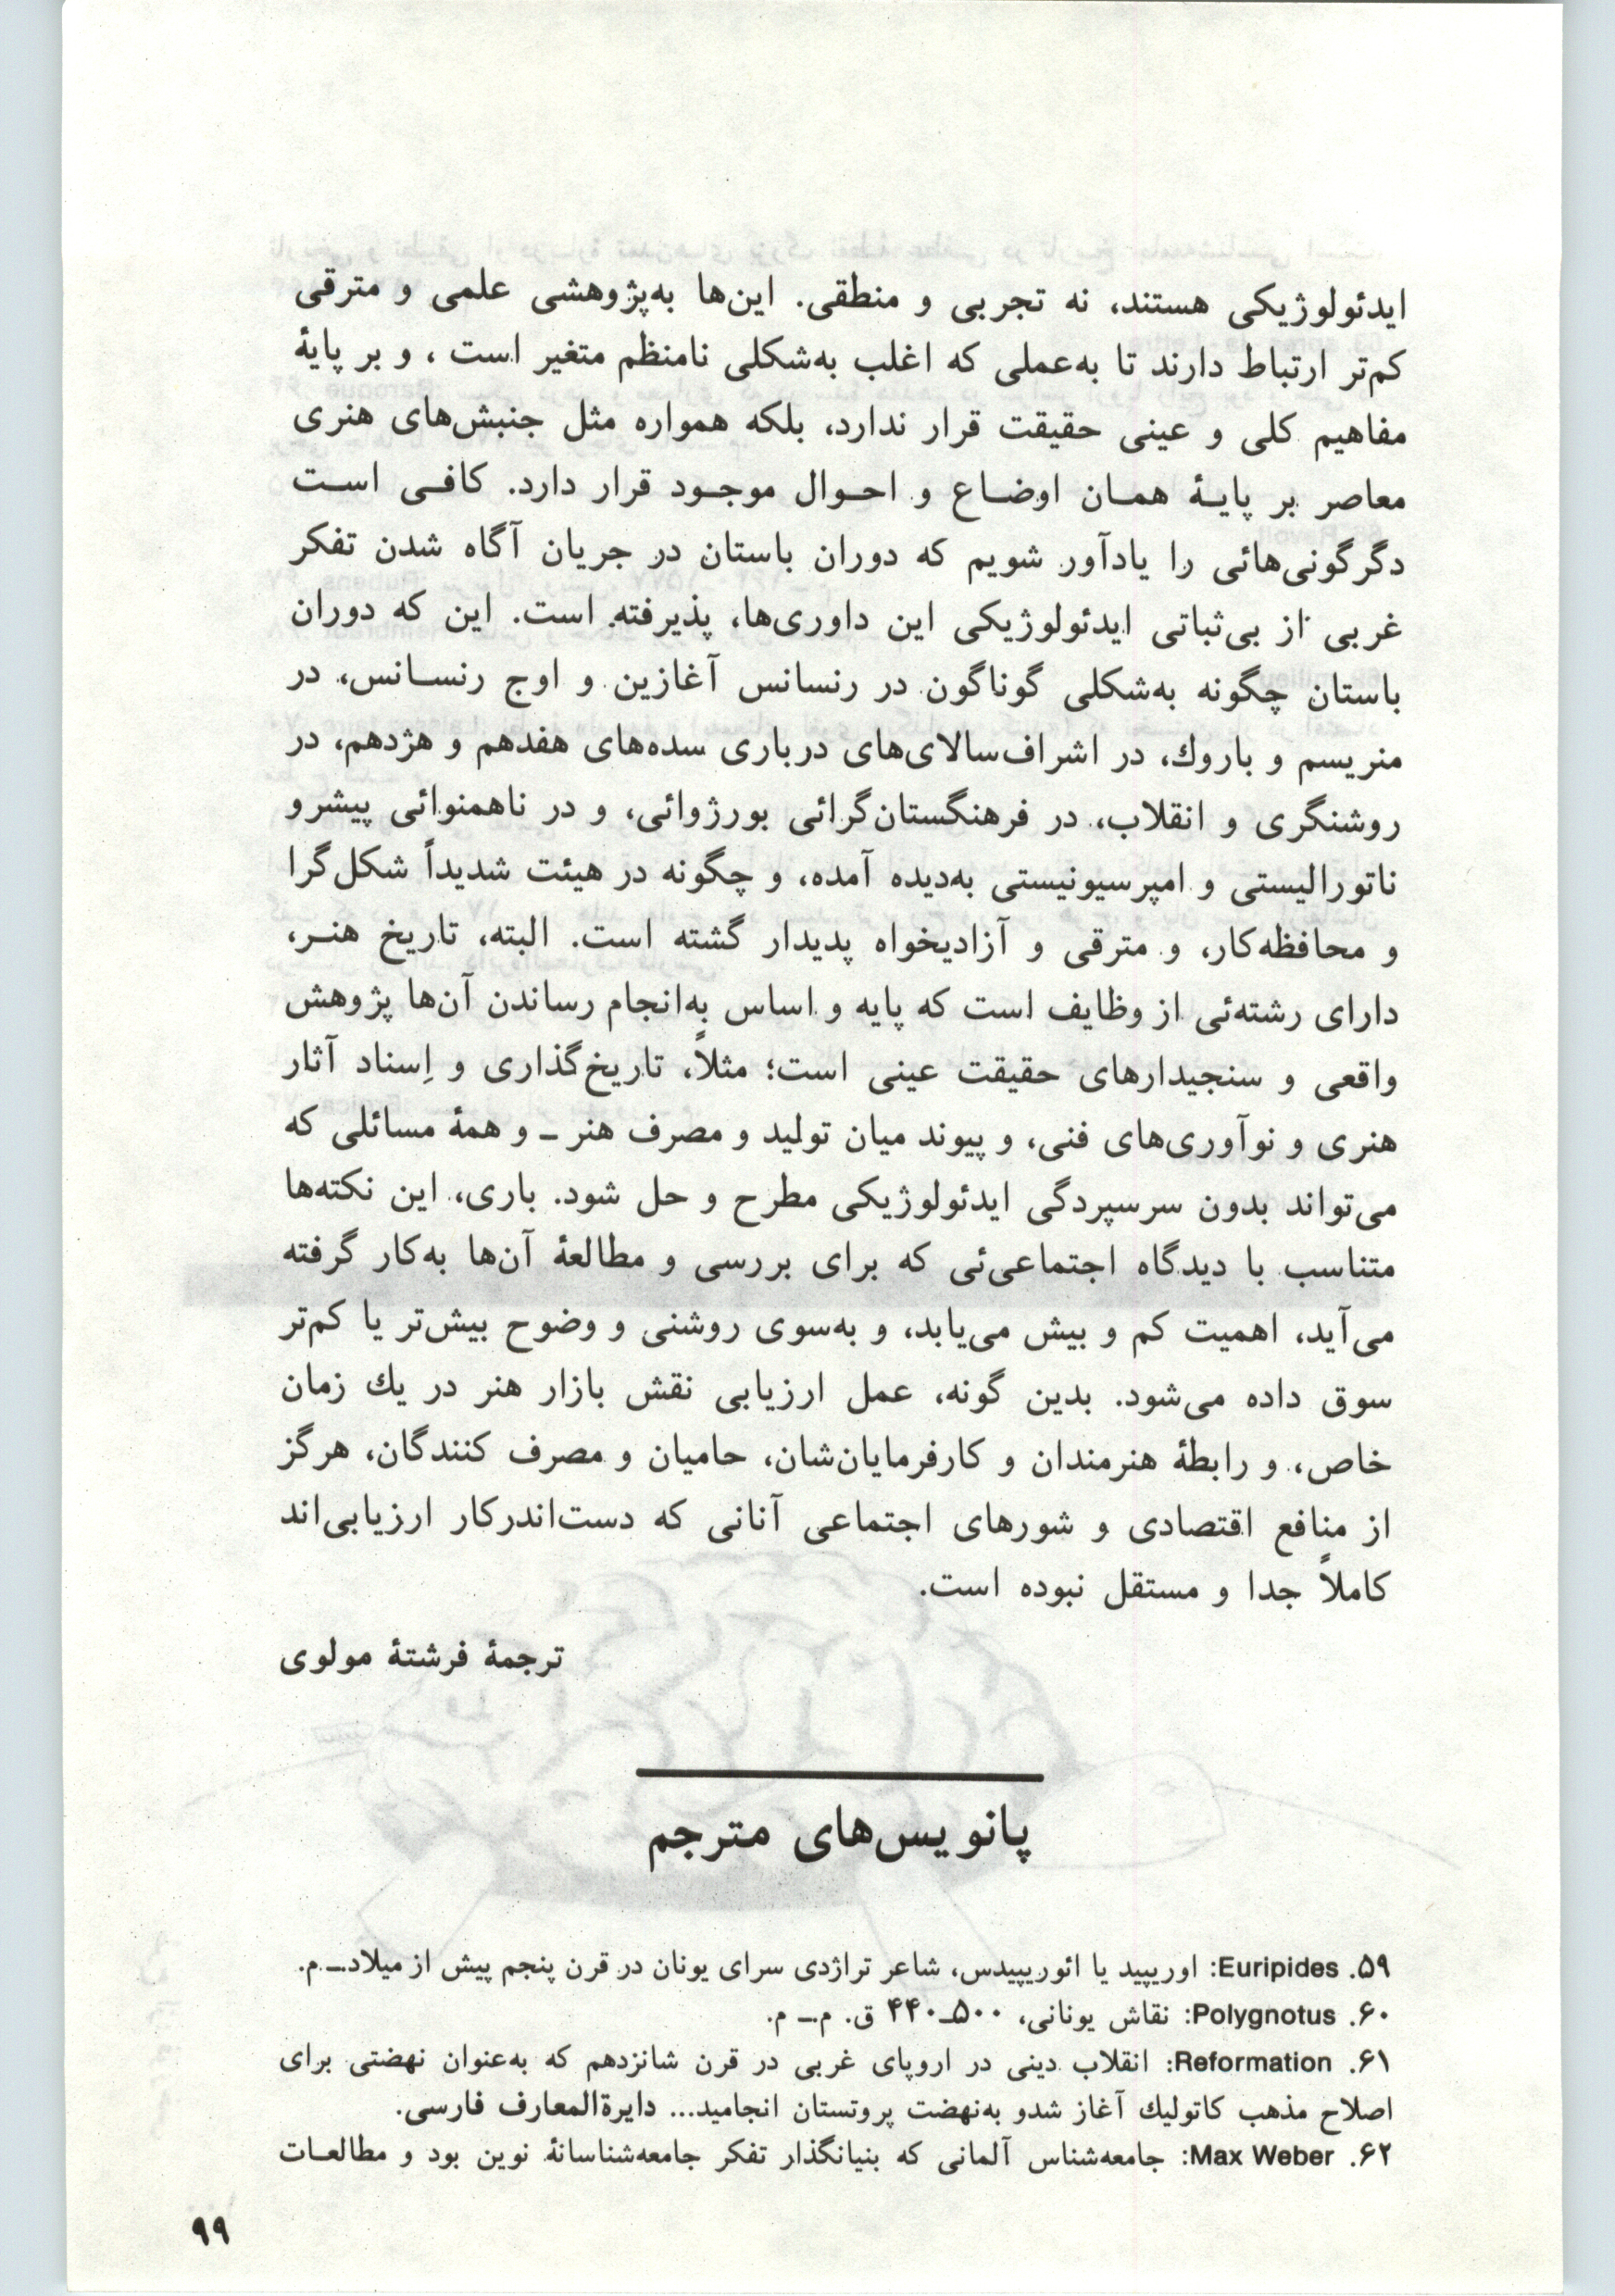 ایدئولوژیکی هستند، نه تجربی و منطقی. این‌ها به‌پژوهشی علمی و مترقی
کم‌تر ارتباط دارند تا به‌عملی که اغلب به‌شکلی نامنظم متغیر است، و بر پایهٔ
مفاهیم کلی و عینی حقیقت قرار ندارد، بلکه همواره مثل جنبش‌های هنری
معاصر بر پایـهٔ همـان اوضـاع و احـوال موجـود قرار دارد. کافـی اسـت
دگرگونی‌هائی را یادآور شویم که دوران باستان در جریان آگاه شدن تفکر
غربی از بی‌ثباتی ایدئولوژیکی این داوری‌ها، پذیرفته است. این که دوران
باستان چگونه به‌شکلی گوناگون در رنسانس آغازین و اوج رنسـانس، در
منریسم و باروك، در اشراف‌سالای‌های درباری سده‌های هفدهم و هژدهم، در
روشنگری و انقلاب، در فرهنگستان‌گرائی بورژوائی، و در ناهمنوائی پیشرو
ناتورالیستی و امپرسیونیستی به‌دیده آمده، و چگونه در هیئت شدیداً شکل‌گرا
و محافظه‌کار، و مترقی و آزادیخواه پدیدار گشته است. البته، تاریخ هنـر،
دارای رشته‌ئی از وظایف است که پایه و اساس به‌انجام رساندن آن‌ها پژوهش
واقعی و سنجیدارهای حقیقت عینی است؛ مثلاً، تاریخ‌گذاری و اِسناد آثار
هنری و نوآوری‌های فنی، و پیوند میان تولید و مصرف هنر ـ و همهٔ مسائلی که
می‌تواند بدون سرسپردگی ایدئولوژیکی مطرح و حل شود. باری، این نکته‌ها
متناسب با دیدگاه اجتماعی‌ئی که برای بررسی و مطالعهٔ آن‌ها به‌کار گرفته
می‌آید، اهمیت کم و بیش می‌یابد، و به‌سوی روشنی و وضوح بیش‌تر یا کم‌تر
سوق داده می‌شود. بدین گونه، عمل ارزیابی نقش بازار هنر در یك زمان
خاص، و رابطهٔ هنرمندان و کارفرمایان‌شان، حامیان و مصرف کنندگان، هرگز
از منافع اقتصادی و شورهای اجتماعی آنانی که دست‌اندرکار ارزیابی‌اند
کاملاً جدا و مستقل نبوده است.
ترجمهٔ فرشتهٔ مولوی
پانویس‌های مترجم
۵۹. Euripides: اوریپید یا ائوریپیدس، شاعر تراژدی سرای یونان در قرن پنجم پیش از میلاد.ـ م.
۶۰. Polygnotus: نقاش یونانی، ۵۰۰ـ۴۴۰ ق. م.ـ م.
۶۱. Reformation: انقلاب دینی در اروپای غربی در قرن شانزدهم که به‌عنوان نهضتی برای
اصلاح مذهب کاتولیك آغاز شدو به‌نهضت پروتستان انجامید... دایرةالمعارف فارسی.
۶۲. Max Weber: جامعه‌شناس آلمانی که بنیانگذار تفکر جامعه‌شناسانهٔ نوین بود و مطالعـات
۹۹